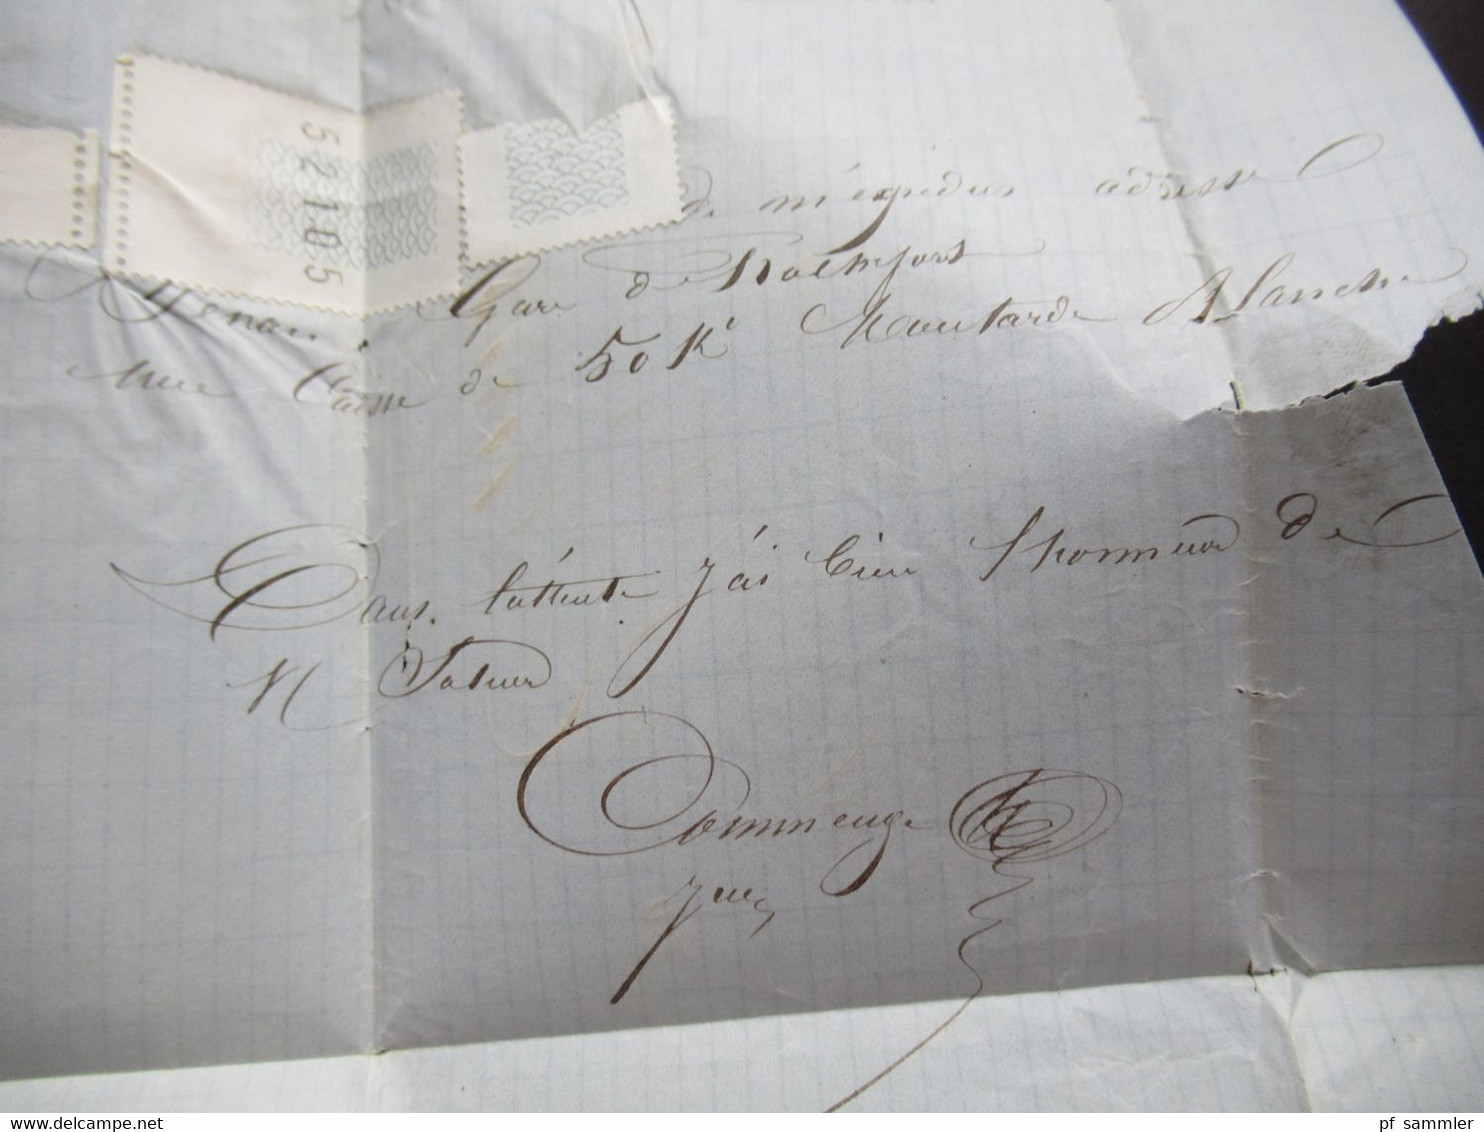 52105
de m'expédier adresse
Gare de Rochefort
une Caisse de 50 Kº Moutarde Blanche
Dans l'attente J'ai bien l'honneur de
V Saluer
Commenge
Jne
pf sammler